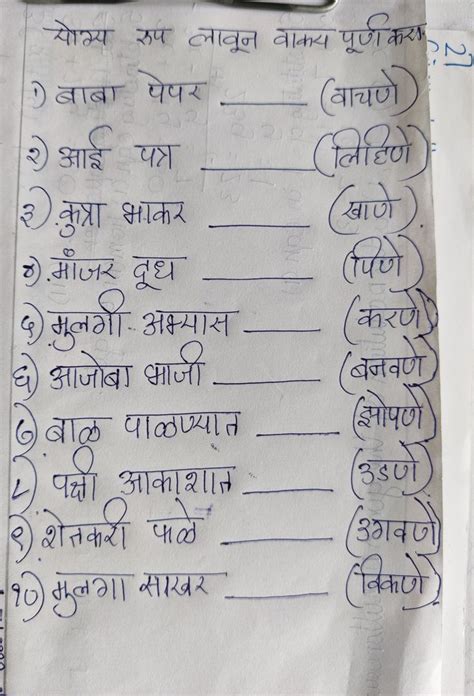 योग्य रूप लावून वाक्य पूर्ण करा
१) बाबा पेपर ______ (वाचणे)
२) आई पत्र ______ (लिहिणे)
३) कुत्रा भाकर ______ (खाणे)
४) मांजर दूध ______ (पिणे)
५) मुलगी अभ्यास ______ (करणे)
६) आजोबा भाजी ______ (बनवणे)
७) बाळ पाळण्यात ______ (झोपणे)
८) पक्षी आकाशात ______ (उडणे)
९) शेतकरी फळे ______ (उगवणे)
१०) मुलगा साखर ______ (विकणे)
27